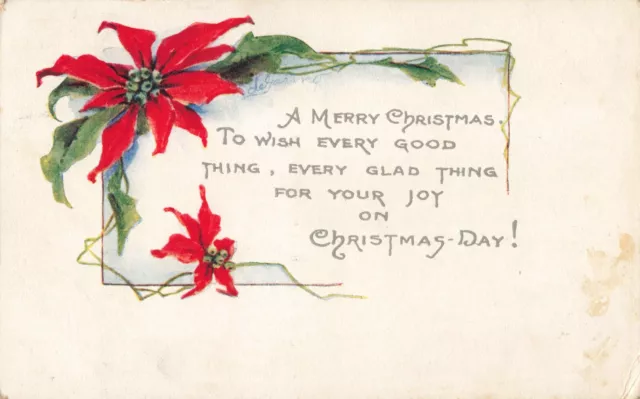 A Merry Christmas.
To wish every good
thing, every glad thing
for your joy
on
Christmas-Day!